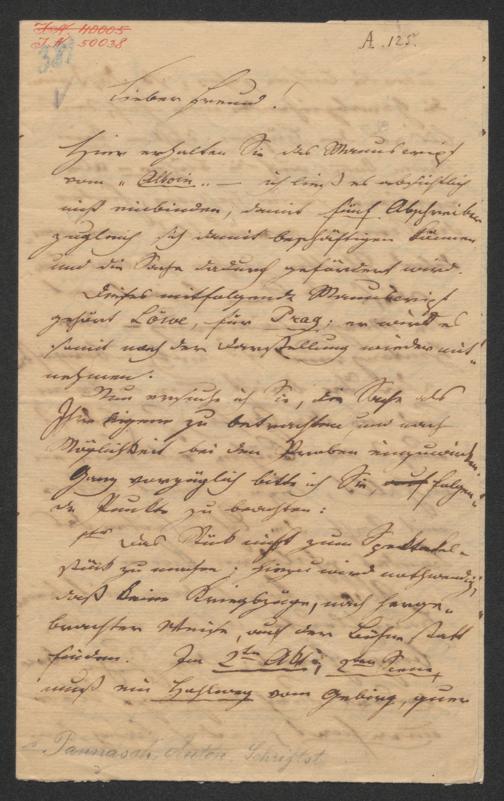 I.N. 40005
I.N. 50038
A. 125.
Lieber Freund!
Hier erhalten Sie das Manuscript
vom „Alboin" — ich ließ es absichtlich
nicht einbinden, damit fünf Abschreiber
zugleich sich damit beschäftigen können
und die Sache dadurch gefördert wird.
Dieses mitfolgende Manuscript
gehört Löwe, für Prag; er wird es
somit nach der Darstellung wieder mit=
nehmen.
Nun ersuche ich Sie, die Sache als
Ihre eigene zu betrachten und nach
Möglichkeit bei den Proben einzuwirken.
Ganz vorzüglich bitte ich Sie, auf folgen=
de Punkte zu beachten:
Das Stück nicht zum Spektakel=
stück zu machen; hiezu wird nothwendig,
daß keine Kriegszüge, nach herge=
brachter Weise, auf der Bühne statt
finden. Im 2ten Akt, 2ten Scene,
muß ein Hohlweg vom Gebirg, quer
Pannasch, Anton Schriftst.